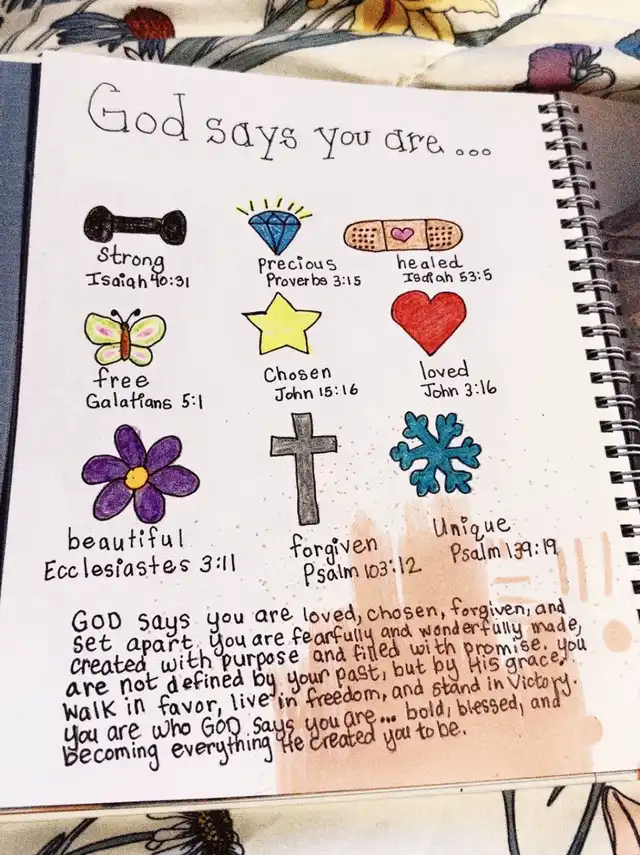 God says you are...
Strong
Isaiah 40:31
Precious
Proverbs 3:15
healed
Isaiah 53:5
free
Galatians 5:1
Chosen
John 15:16
loved
John 3:16
beautiful
Ecclesiastes 3:11
forgiven
Psalm 103:12
Unique
Psalm 139:19
GOD says you are loved, chosen, forgiven, and
set apart. you are fearfully and wonderfully made,
created with purpose and filled with promise. you
are not defined by your past, but by His grace.
Walk in favor, live in freedom, and stand in Victory.
you are who GOD says you are... bold, blessed, and
becoming everything He created you to be.